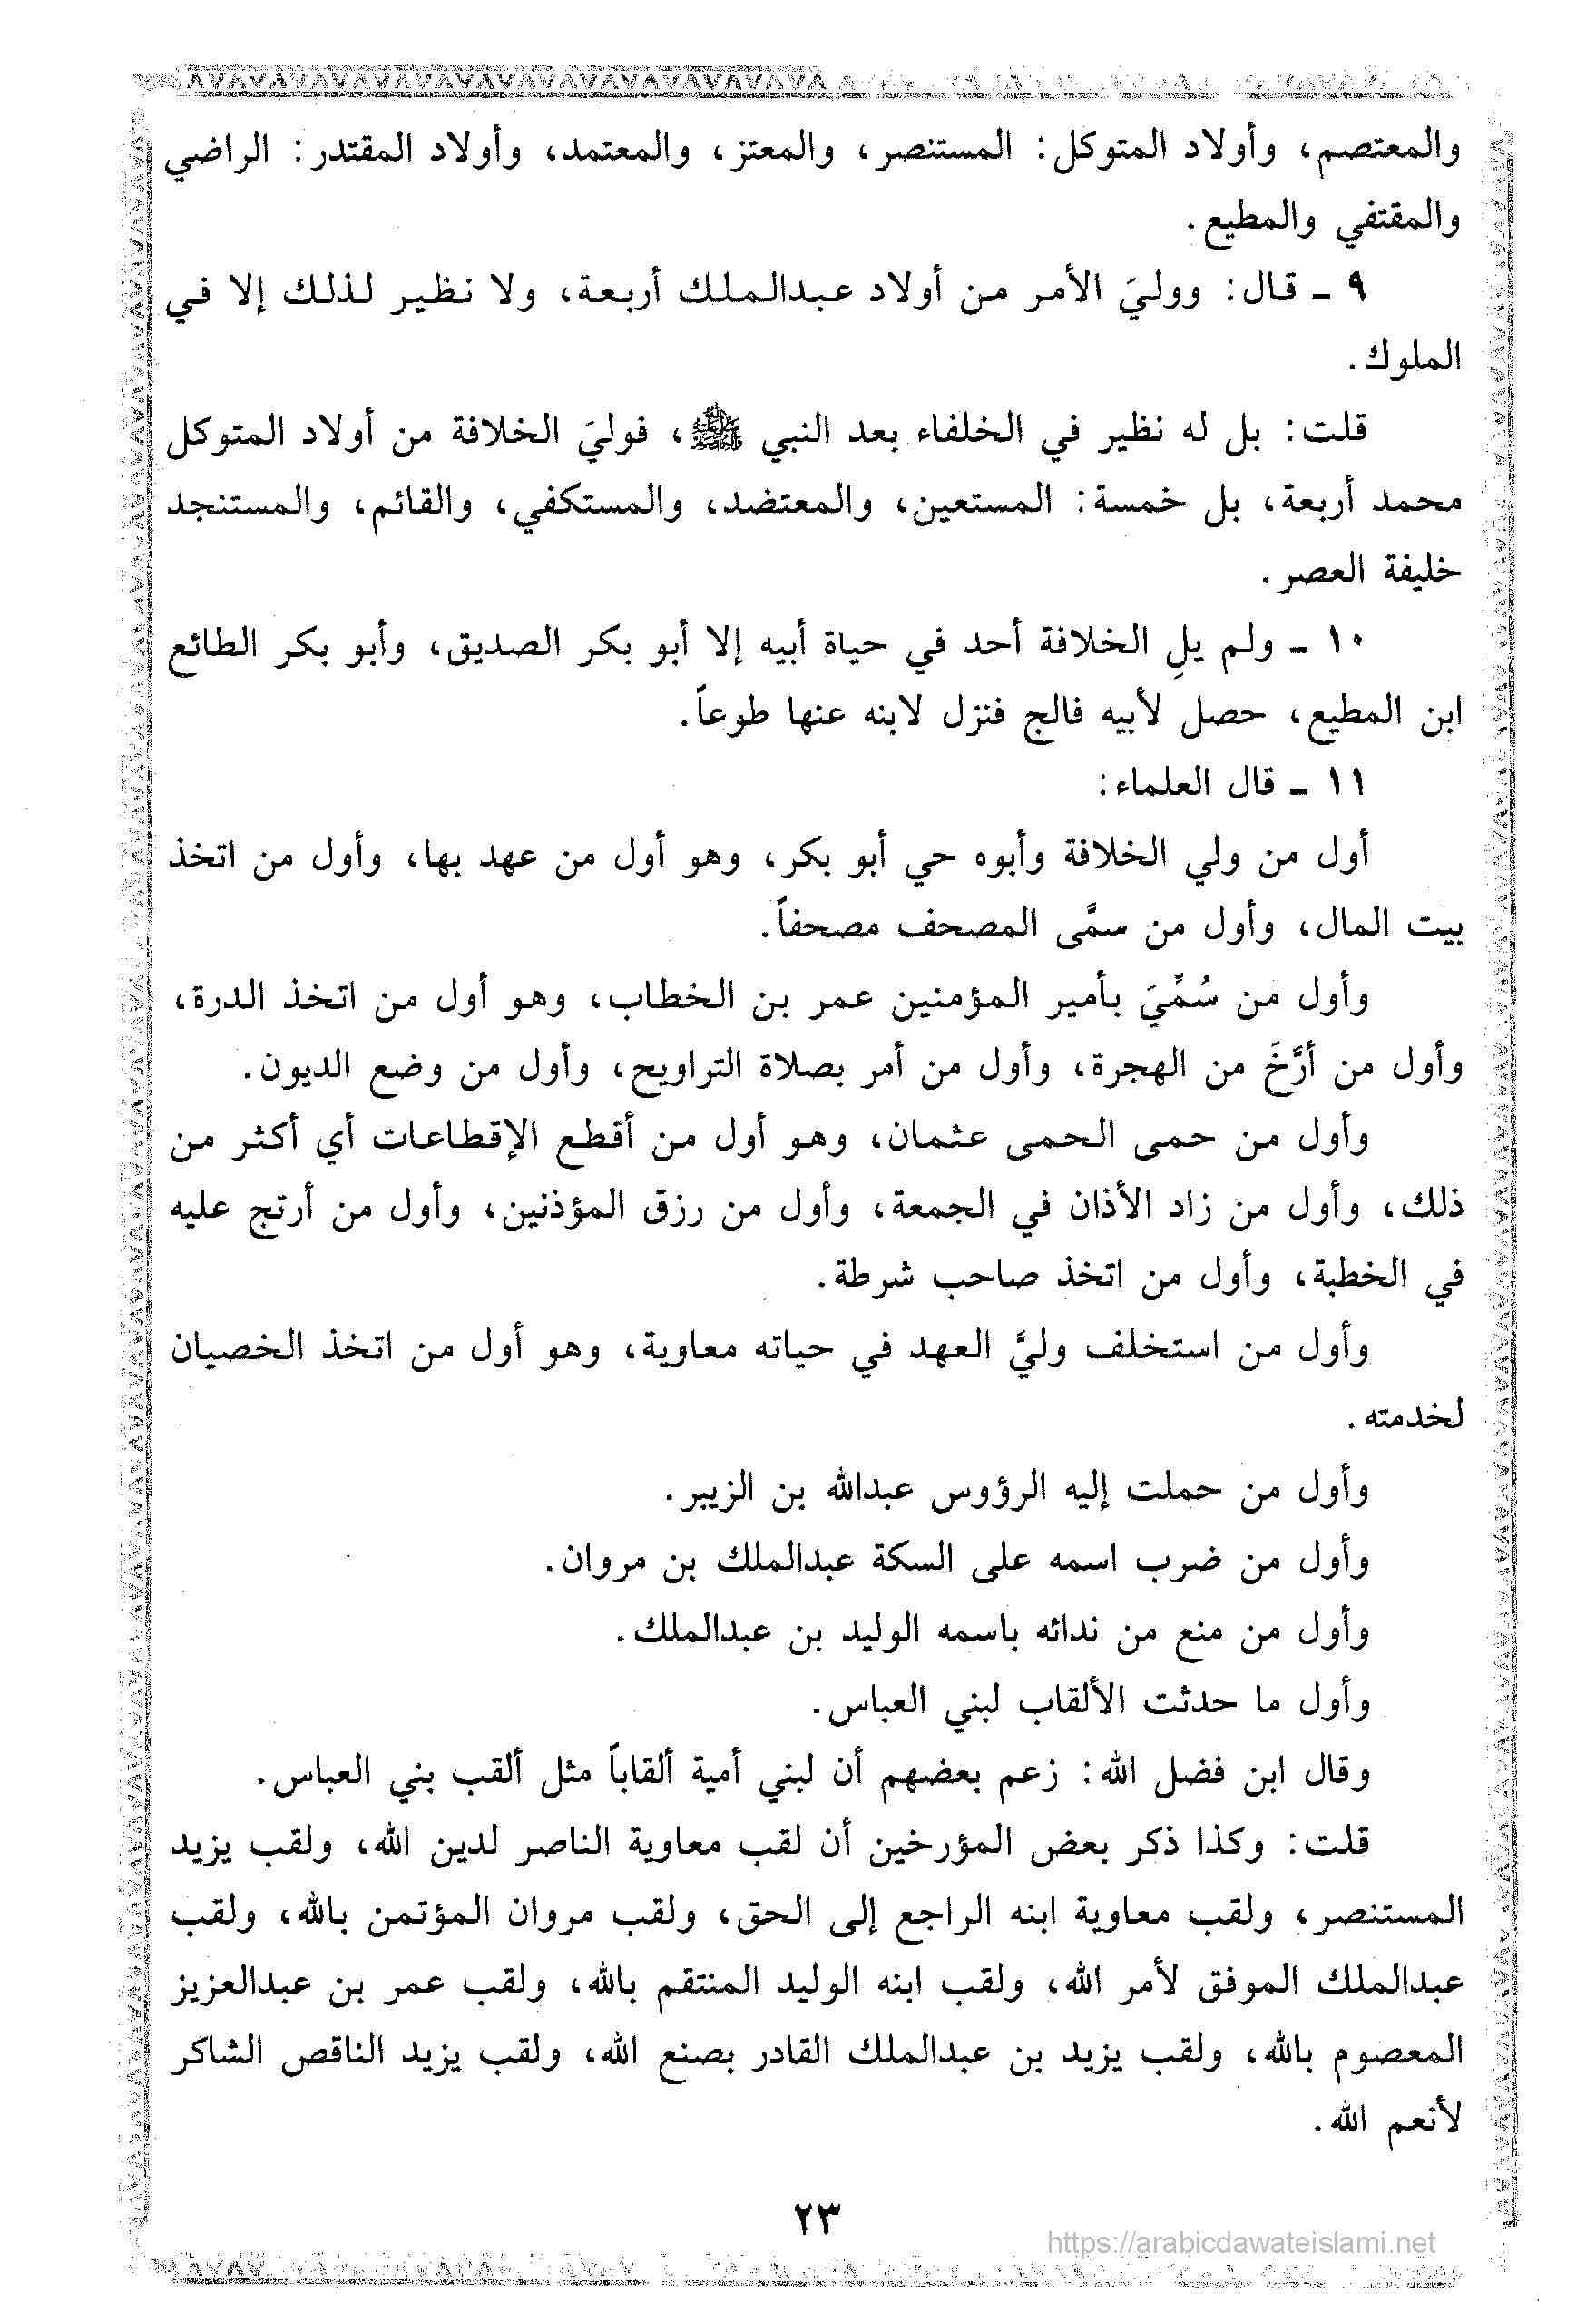 والمعتصم، وأولاد المتوكل: المستنصر، والمعتز، والمعتمد، وأولاد المقتدر: الراضي
والمقتفي والمطيع.
٩ ـ قال: ووليَ الأمر من أولاد عبدالملك أربعة، ولا نظير لذلك إلا في
الملوك.
قلت: بل له نظير في الخلفاء بعد النبي ﷺ، فوليَ الخلافة من أولاد المتوكل
محمد أربعة، بل خمسة: المستعين، والمعتضد، والمستكفي، والقائم، والمستنجد
خليفة العصر.
١٠ ـ ولم يلِ الخلافة أحد في حياة أبيه إلا أبو بكر الصديق، وأبو بكر الطائع
ابن المطيع، حصل لأبيه فالج فنزل لابنه عنها طوعاً.
١١ ـ قال العلماء:
أول من ولي الخلافة وأبوه حي أبو بكر، وهو أول من عهد بها، وأول من اتخذ
بيت المال، وأول من سمَّى المصحف مصحفاً.
وأول من سُمِّيَ بأمير المؤمنين عمر بن الخطاب، وهو أول من اتخذ الدرة،
وأول من أرَّخَ من الهجرة، وأول من أمر بصلاة التراويح، وأول من وضع الديون.
وأول من حمى الحمى عثمان، وهو أول من أقطع الإقطاعات أي أكثر من
ذلك، وأول من زاد الأذان في الجمعة، وأول من رزق المؤذنين، وأول من أرتج عليه
في الخطبة، وأول من اتخذ صاحب شرطة.
وأول من استخلف وليَّ العهد في حياته معاوية، وهو أول من اتخذ الخصيان
لخدمته.
وأول من حملت إليه الرؤوس عبدالله بن الزبير.
وأول من ضرب اسمه على السكة عبدالملك بن مروان.
وأول من منع من ندائه باسمه الوليد بن عبدالملك.
وأول ما حدثت الألقاب لبني العباس.
وقال ابن فضل الله: زعم بعضهم أن لبني أمية ألقاباً مثل ألقب بني العباس.
قلت: وكذا ذكر بعض المؤرخين أن لقب معاوية الناصر لدين الله، ولقب يزيد
المستنصر، ولقب معاوية ابنه الراجع إلى الحق، ولقب مروان المؤتمن بالله، ولقب
عبدالملك الموفق لأمر الله، ولقب ابنه الوليد المنتقم بالله، ولقب عمر بن عبدالعزيز
المعصوم بالله، ولقب يزيد بن عبدالملك القادر بصنع الله، ولقب يزيد الناقص الشاكر
لأنعم الله.
٢٣
https://arabicdawateislami.net